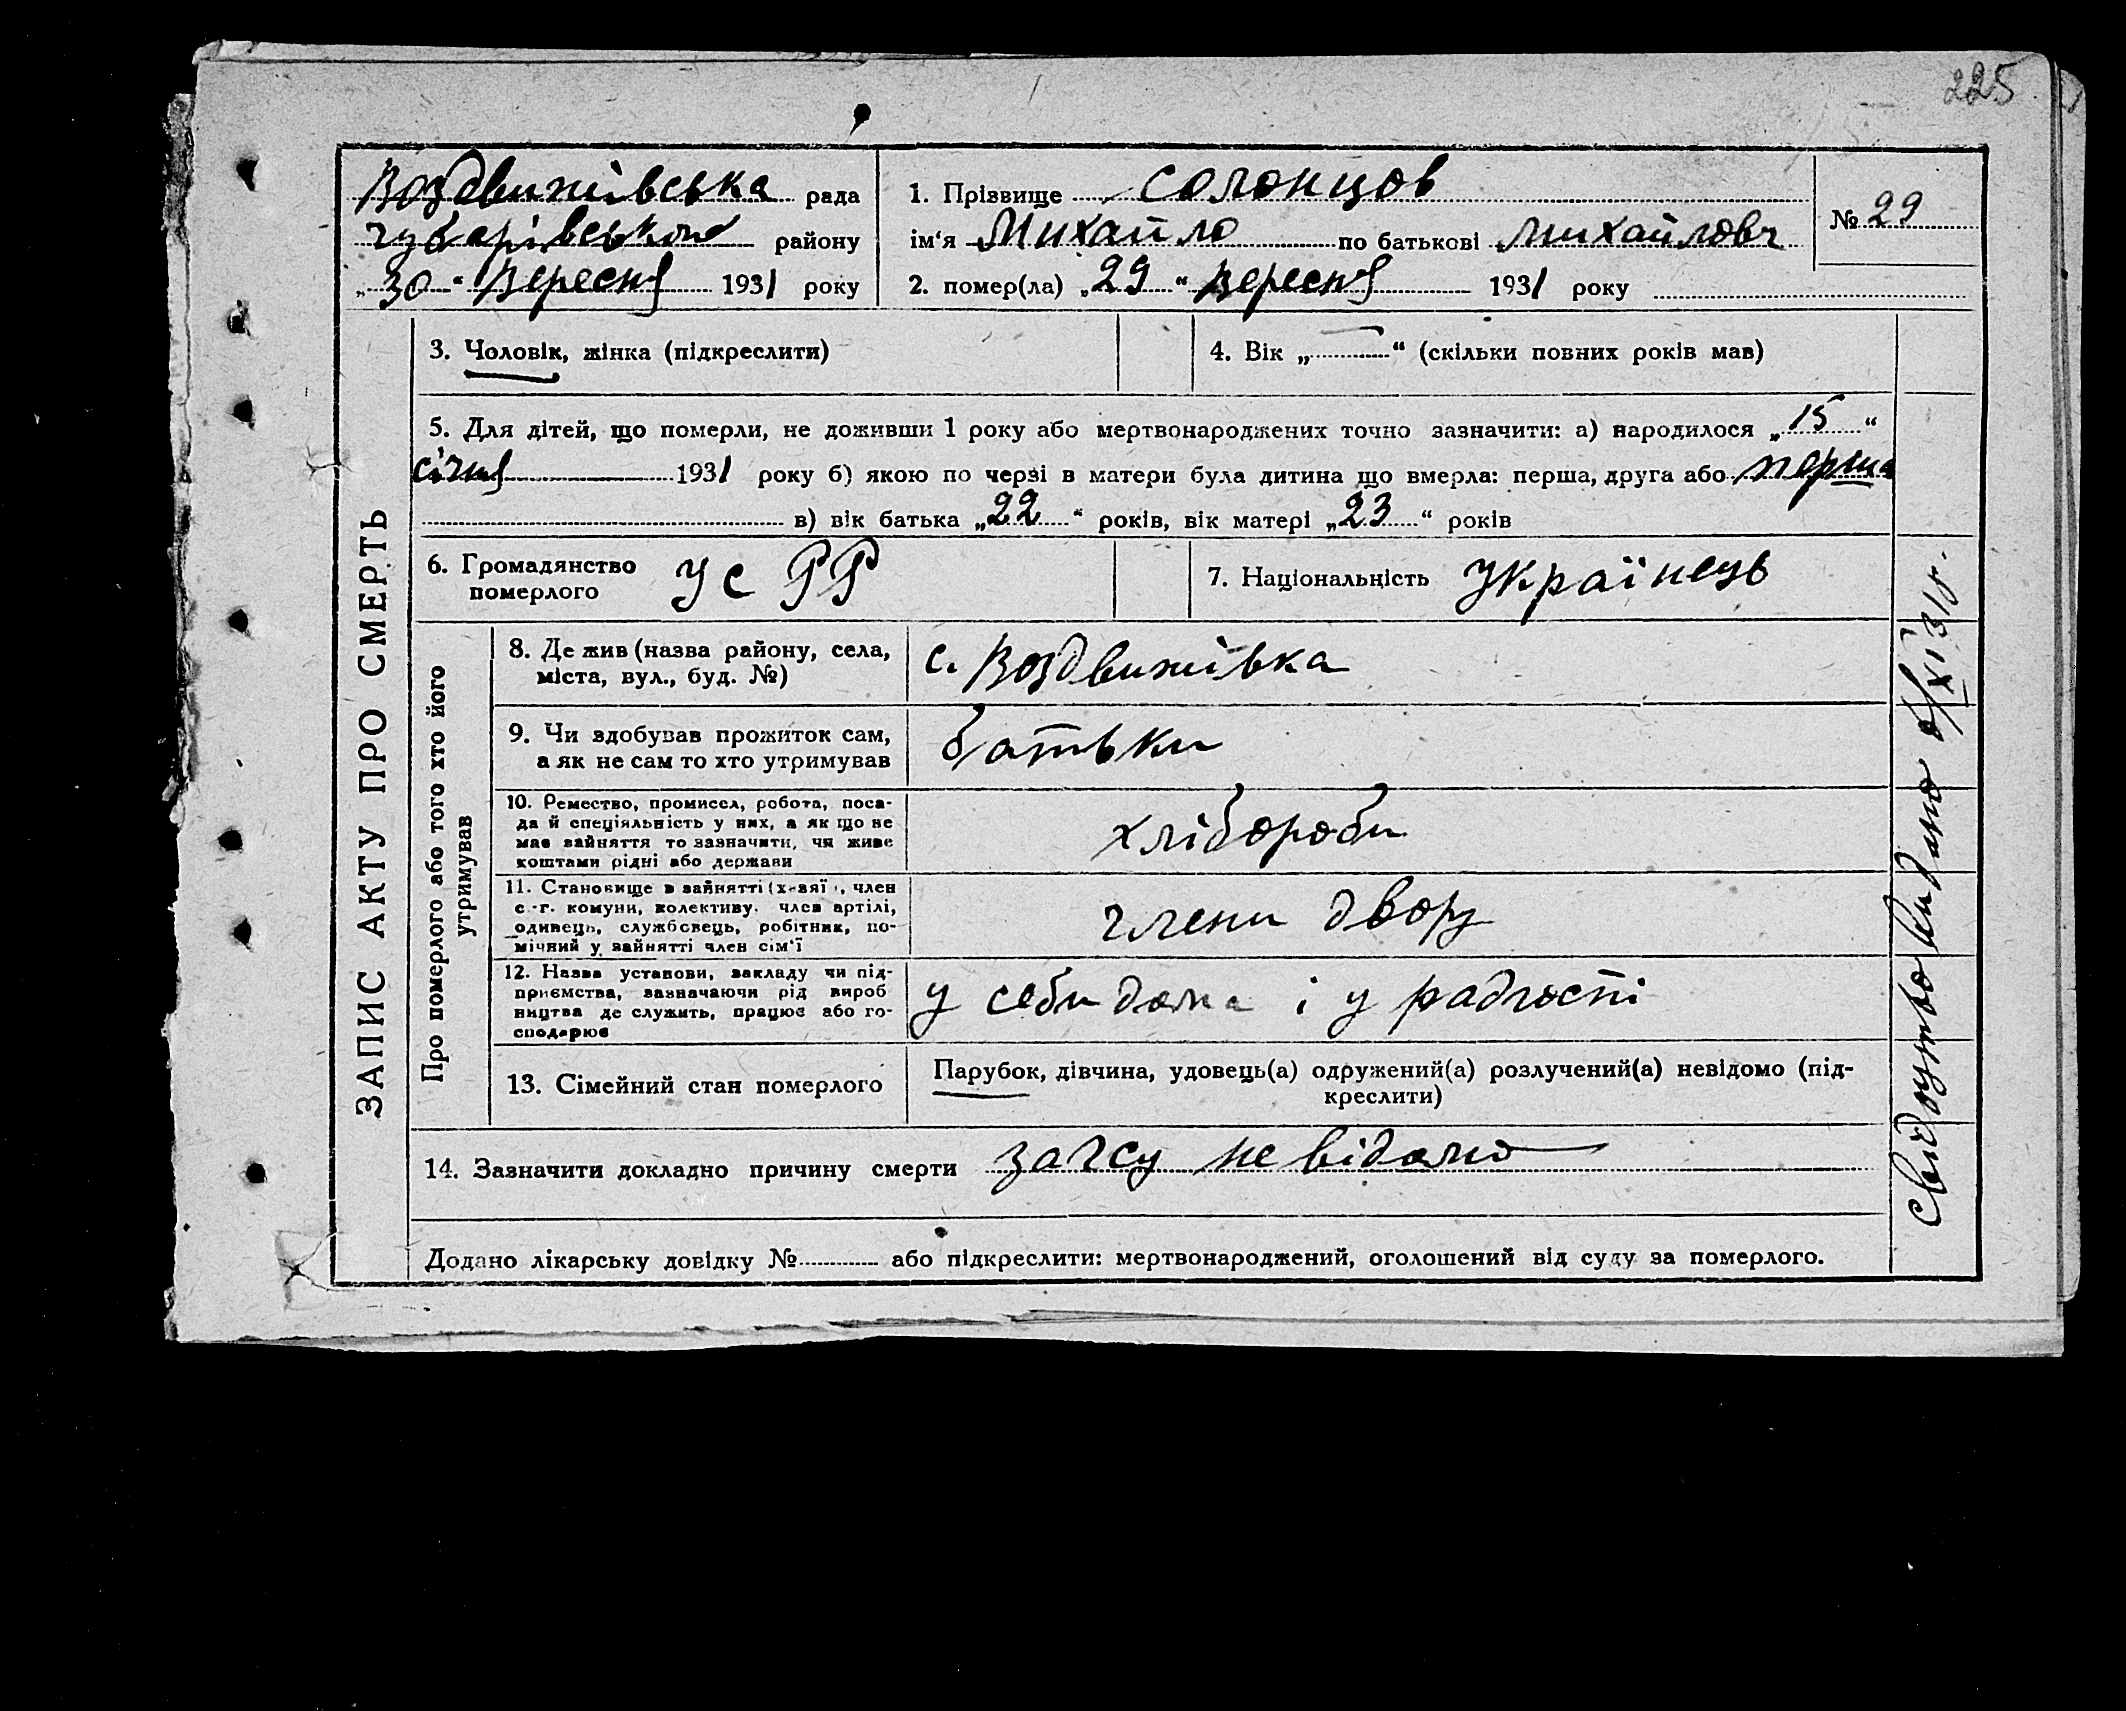 225
Воздвижівська рада
Чубарівського району
„30“ Вересня 1931 року
1. Прізвище Солонцов
ім‘я Михайло по батькові Михайлович
2. помер(ла) „29“ Вересня 1931 року
№ 29
ЗАПИС АКТУ ПРО СМЕРТЬ
3. Чоловік, жінка (підкреслити)
4. Вік „—“ (скільки повних років мав)
5. Для дітей, що померли, не доживши 1 року або мертвонароджених точно зазначити: а) народилося „15“
січня 1931 року б) якою по черзі в матери була дитина що вмерла: перша, друга або перша
в) вік батька „22“ років, вік матері „23“ років
6. Громадянство
померлого
УСРР
7. Національність Українець
Про померлого або того хто його
утримував
8. Де жив (назва району, села,
міста, вул., буд. №)
с. Воздвижівка
9. Чи здобував прожиток сам,
а як не сам то хто утримував
батьки
10. Ремество, промисел, робота, поса-
да й спеціяльність у них, а як що не
мав зайняття то зазначити, чи живе
коштами рідні або держави
хлібороби
11. Становище в зайнятті (х зяї , член
с.-г. комуни, колективу, член артілі,
одинець, службовець, робітник, по-
мічний у зайнятті член сім‘ї
члени двору
12. Назва установи, закладу чи під-
приємства, зазначаючи рід вироб
ництва де служить, працює або го-
сподарює
у себи дома і у
13. Сімейний стан померлого
Парубок, дівчина, удовець(а) одружений(а) розлучений(а) невідомо (під-
креслити)
14. Зазначити докладно причину смерти загсу не відомо
Додано лікарську довідку № або підкреслити: мертвонароджений, оголошений від суду за померлого.
Свідоцтво видано